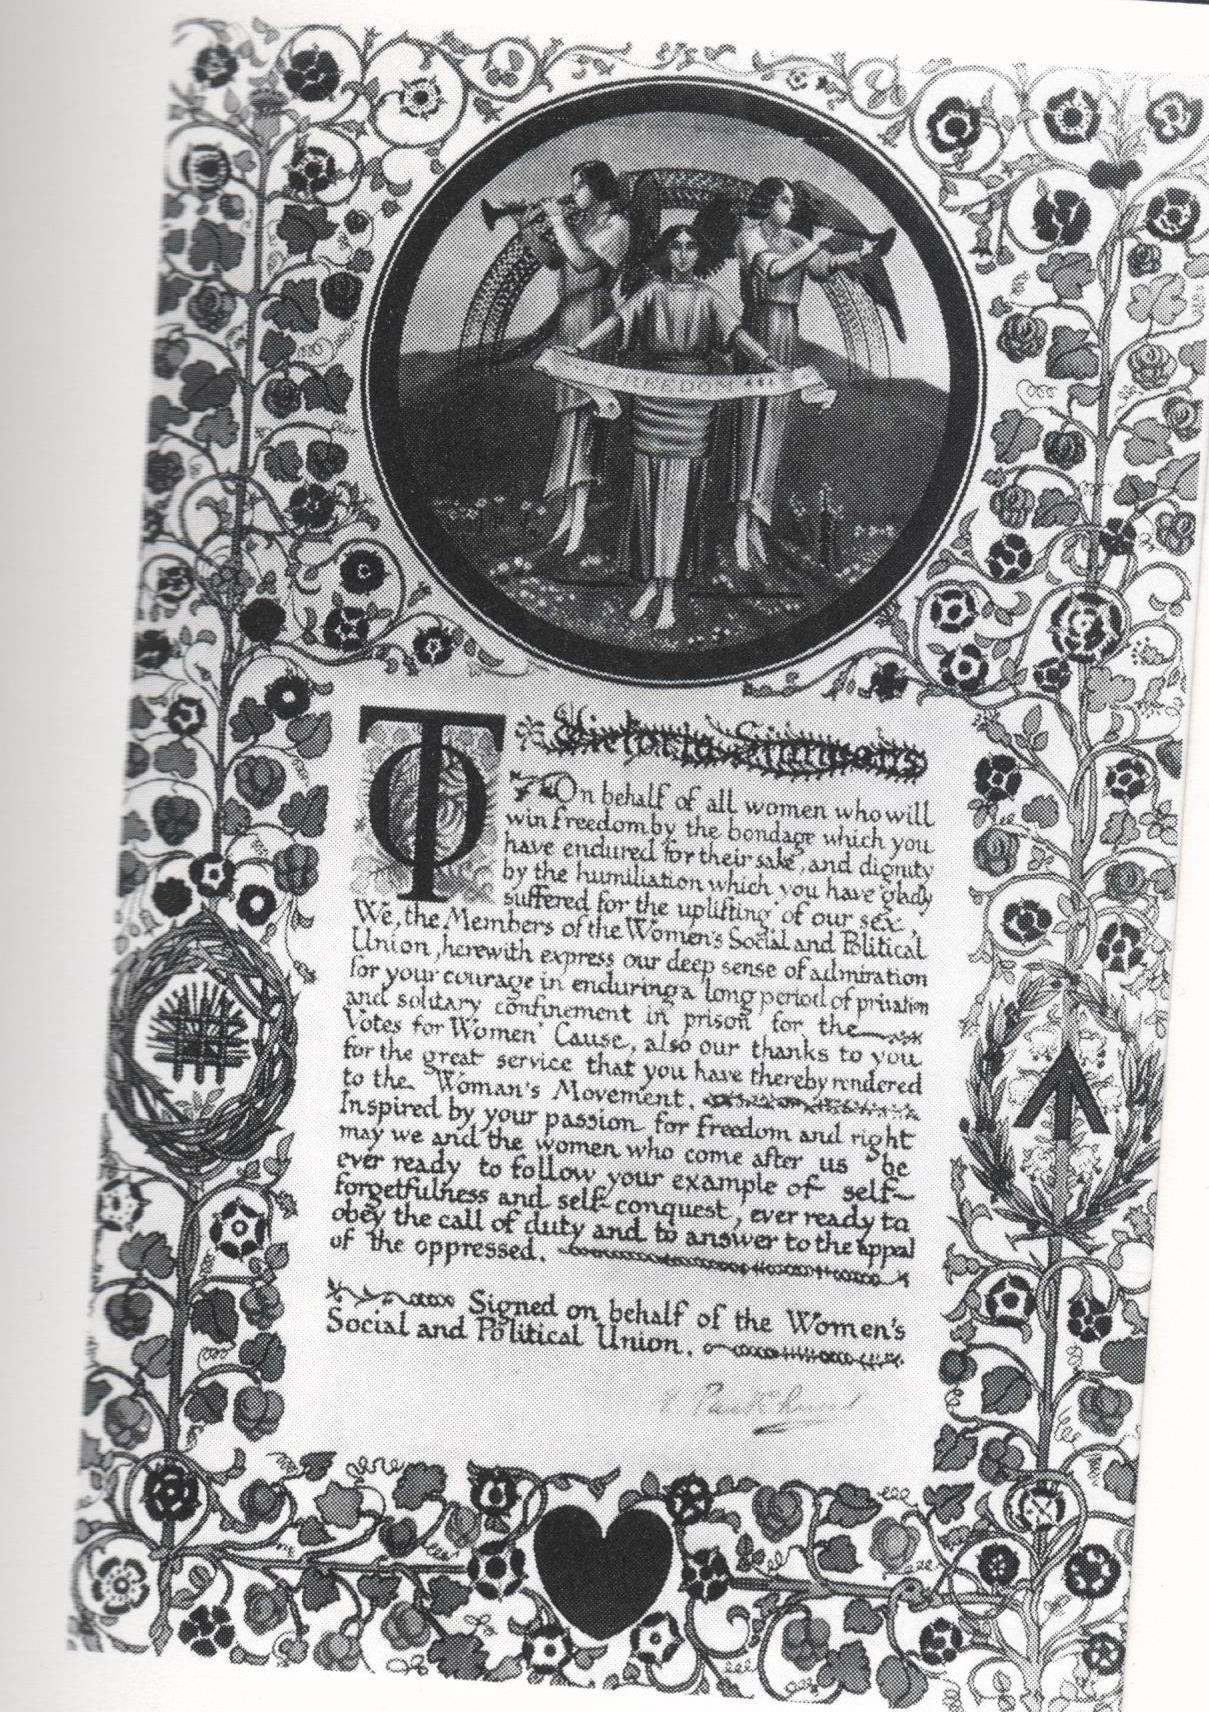 FREEDOM
To Victoria Simmons
On behalf of all women who will
win freedom by the bondage which you
have endured for their sake, and dignity
by the humiliation which you have gladly
suffered for the uplifting of our sex,
We, the Members of the Women's Social and Political
Union, herewith express our deep sense of admiration
for your courage in enduring a long period of privation
and solitary confinement in prison for the
Votes for Women' Cause, also our thanks to you
for the great service that you have thereby rendered
to the Woman's Movement.
Inspired by your passion for freedom and right
may we and the women who come after us be
ever ready to follow your example of self-
forgetfulness and self-conquest, ever ready to
obey the call of duty and to answer to the appeal
of the oppressed.
Signed on behalf of the Women's
Social and Political Union.
E Pankhurst